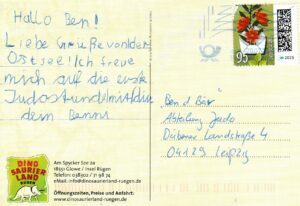 Hallo Ben!
Liebe Grüße von der
Ostsee! Ich freue
mich auf die erste
Judostunde mit dir
dem Benni
95
Ben d. Bär
Abteilung Judo
Dübener Landstraße 4
04129 Leipzig
DINO
SAURIER
LAND
RÜGEN
Am Spycker See 2a
18551 Glowe / Insel Rügen
Telefon
info@dinosaurierland-ruegen.de
Öffnungszeiten, Preise und Anfahrt:
www.dinosaurierland-ruegen.de